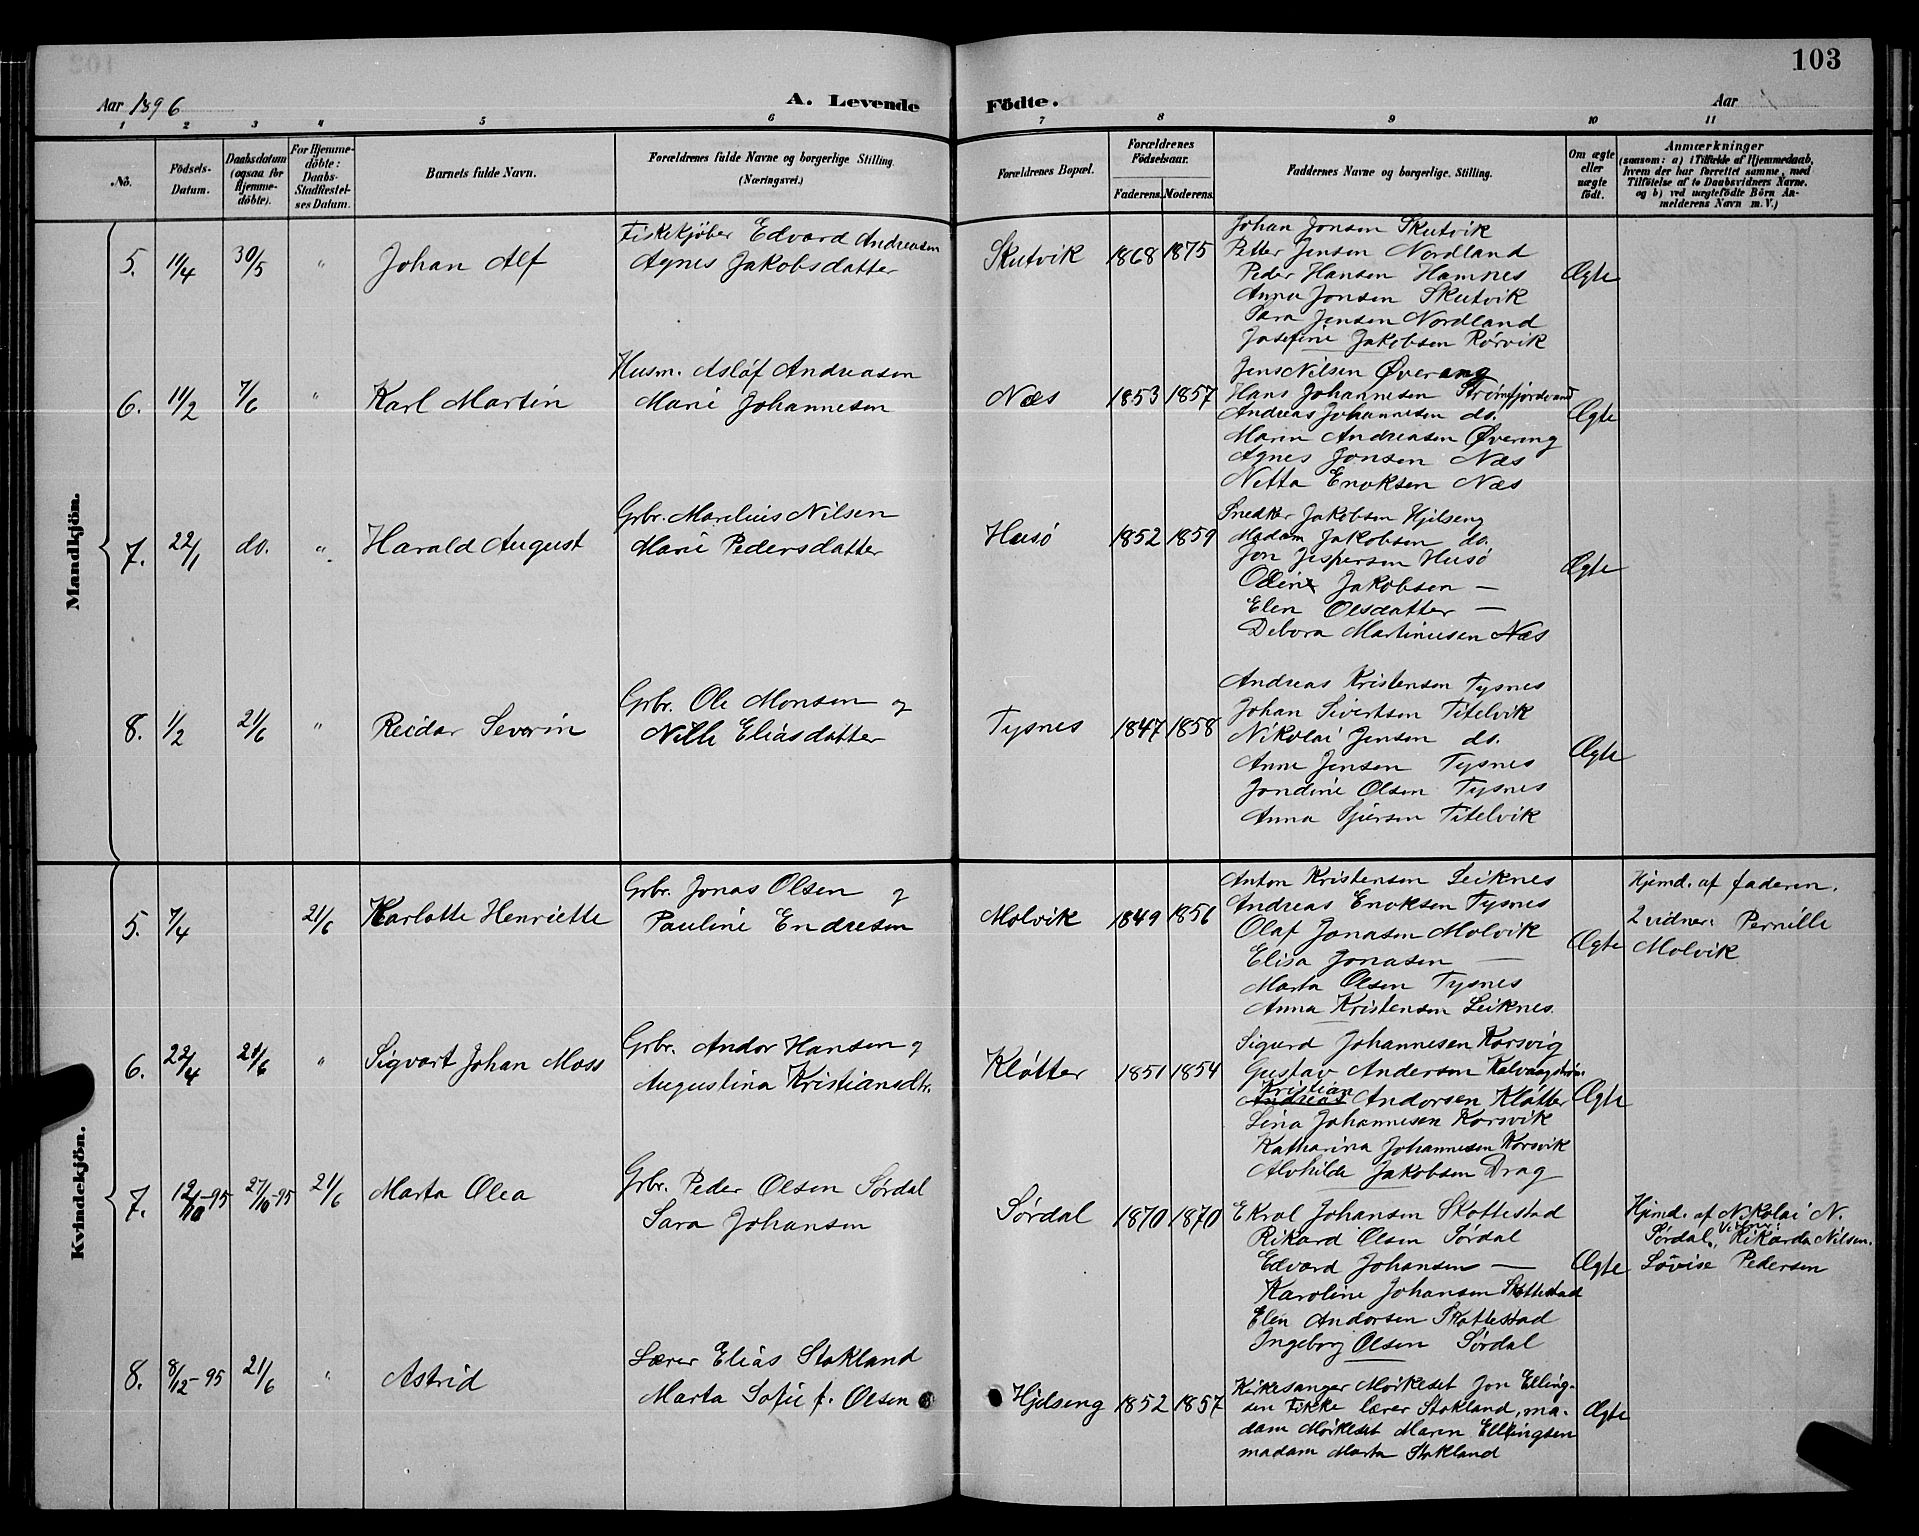 103
Aar 1896
A. Levende
Födte.
Aar
1 2 3 4 5 6 7 8 9 10 11
No.
Födsels-Datum.
Daabsdatum (ogsaa for Hjemme-döbte).
For Hjemme-döbte: Daabs-Stadfæstel-ses Datum.
Barnets fulde Navn.
Forældrenes fulde Navne og borgerlige Stilling. (Næringsvei.)
Forældrenes Bopæl.
Forældrenes Födselsaar.
Faderens. Moderens.
Faddernes Navne og borgerlige Stilling.
Om ægte eller uægte födt.
Anmærkninger
(saasom: a) i Tilfælde af Hjemmedaab, hvem der har forrettet samme, med Tilföielse af to Daabsvidners Navne, og b) ved uægtefödte Börn An-melderens Navn m. V.)
Mandkjön.
5. 11/4 30/5 " Johan Alf
Fiskekjøber Edvard Andreasen
Agnes Jakobsdatter
Skutvik 1868 1875
Johan Jonsen Skutvik
Petter Jensen Nordland
Peder Hansen Hamnes
Anna Jonsen Skutvik
Sara Jensen Nordland
Josefine Jakobsen Rørvik
Ægte
6. 11/2 7/6 " Karl Martin
Husm. Asløf Andreasen
Marie Johannesen
Næs 1853 1857
Jens Nilsen Øvereng
Hans Johannesen Strømfjordvand
Andreas Johannesen do.
Marin Andreasen Øvereng
Agnes Jonsen Næs
Netta Enoksen Næs
Ægte
7. 22/1 do. " Harald August
Grbr. Marelius Nilsen
Marie Pedersdatter
Husø 1852 1859
Snedker Jakobsen Hjelseng
Madam Jakobsen do.
Jon Jespersen Husø
Odin Jakobsen —
Elen Olsdatter —
Debora Martinusen Næs
Ægte
8. 1/2 21/6 " Reidar Severin
Grbr. Ole Monsen og
Nille Eliasdatter
Tysnes 1847 1858
Andreas Kristensen Tysnes
Johan Sivertsen Titelvik
Nikolai Jensen do.
Anne Jensen Tysnes
Jondine Olsen Tysnes
Anna Sjursen Titelvik
Ægte
Kvindekjön.
5. 7/4 21/6 Karlotte Henriette
Grbr. Jonas Olsen og
Pauline Endresen
Molvik 1849 1856
Anton Kristensen Leiknes
Andreas Enoksen Tysnes
Olaf Jonasen Molvik
Elisa Jonasen —
Marta Olsen Tysnes
Anna Kristensen Leiknes.
Ægte
Hjemd. af faderen.
2 vidner: Pernille
Molvik
6. 22/4 21/6 " Sigvart Johan Moss
Grbr. Andor Hansen og
Augustina Kristiansdtr.
Kløtter 1851 1854
Sigurd Johannesen Korsvig
Gustav Andersen
Kristian
Andreas Andorsen Kløtter
Lina Johannesen Korsvik
Katharina Johannesen Korsvik
Alvhilde Jakobsen Drag
Ægte
7. 12/10-95 27/10-95 21/6 Marta Olea
Grbr. Peder Olsen Sørdal
Sara Johansen
Sørdal 1870 1870
Ekrol Johansen Skottestad
Rikard Olsen Sørdal
Edvard Johansen —
Karoline Johansen Skottestad
Elen Andorsen Skottestad
Ingeborg Olsen Sørdal
Ægte
Hjemd. af Nikolai N.
Sørdal. Vidner: Rikarda Nilsen.
Lovise Pedersen
8. 8/12-95 21/6 " Astrid
Lærer Elias Stokland
Marta Sofie f. Olsen
Hjelseng 1852 1857
Kirkesanger Mørkeset Jon Elling-
sen Fikke lærer Stokland, ma-
dam Mørkeset Maren Ellingsen
madam Marta Stokland
Ægte